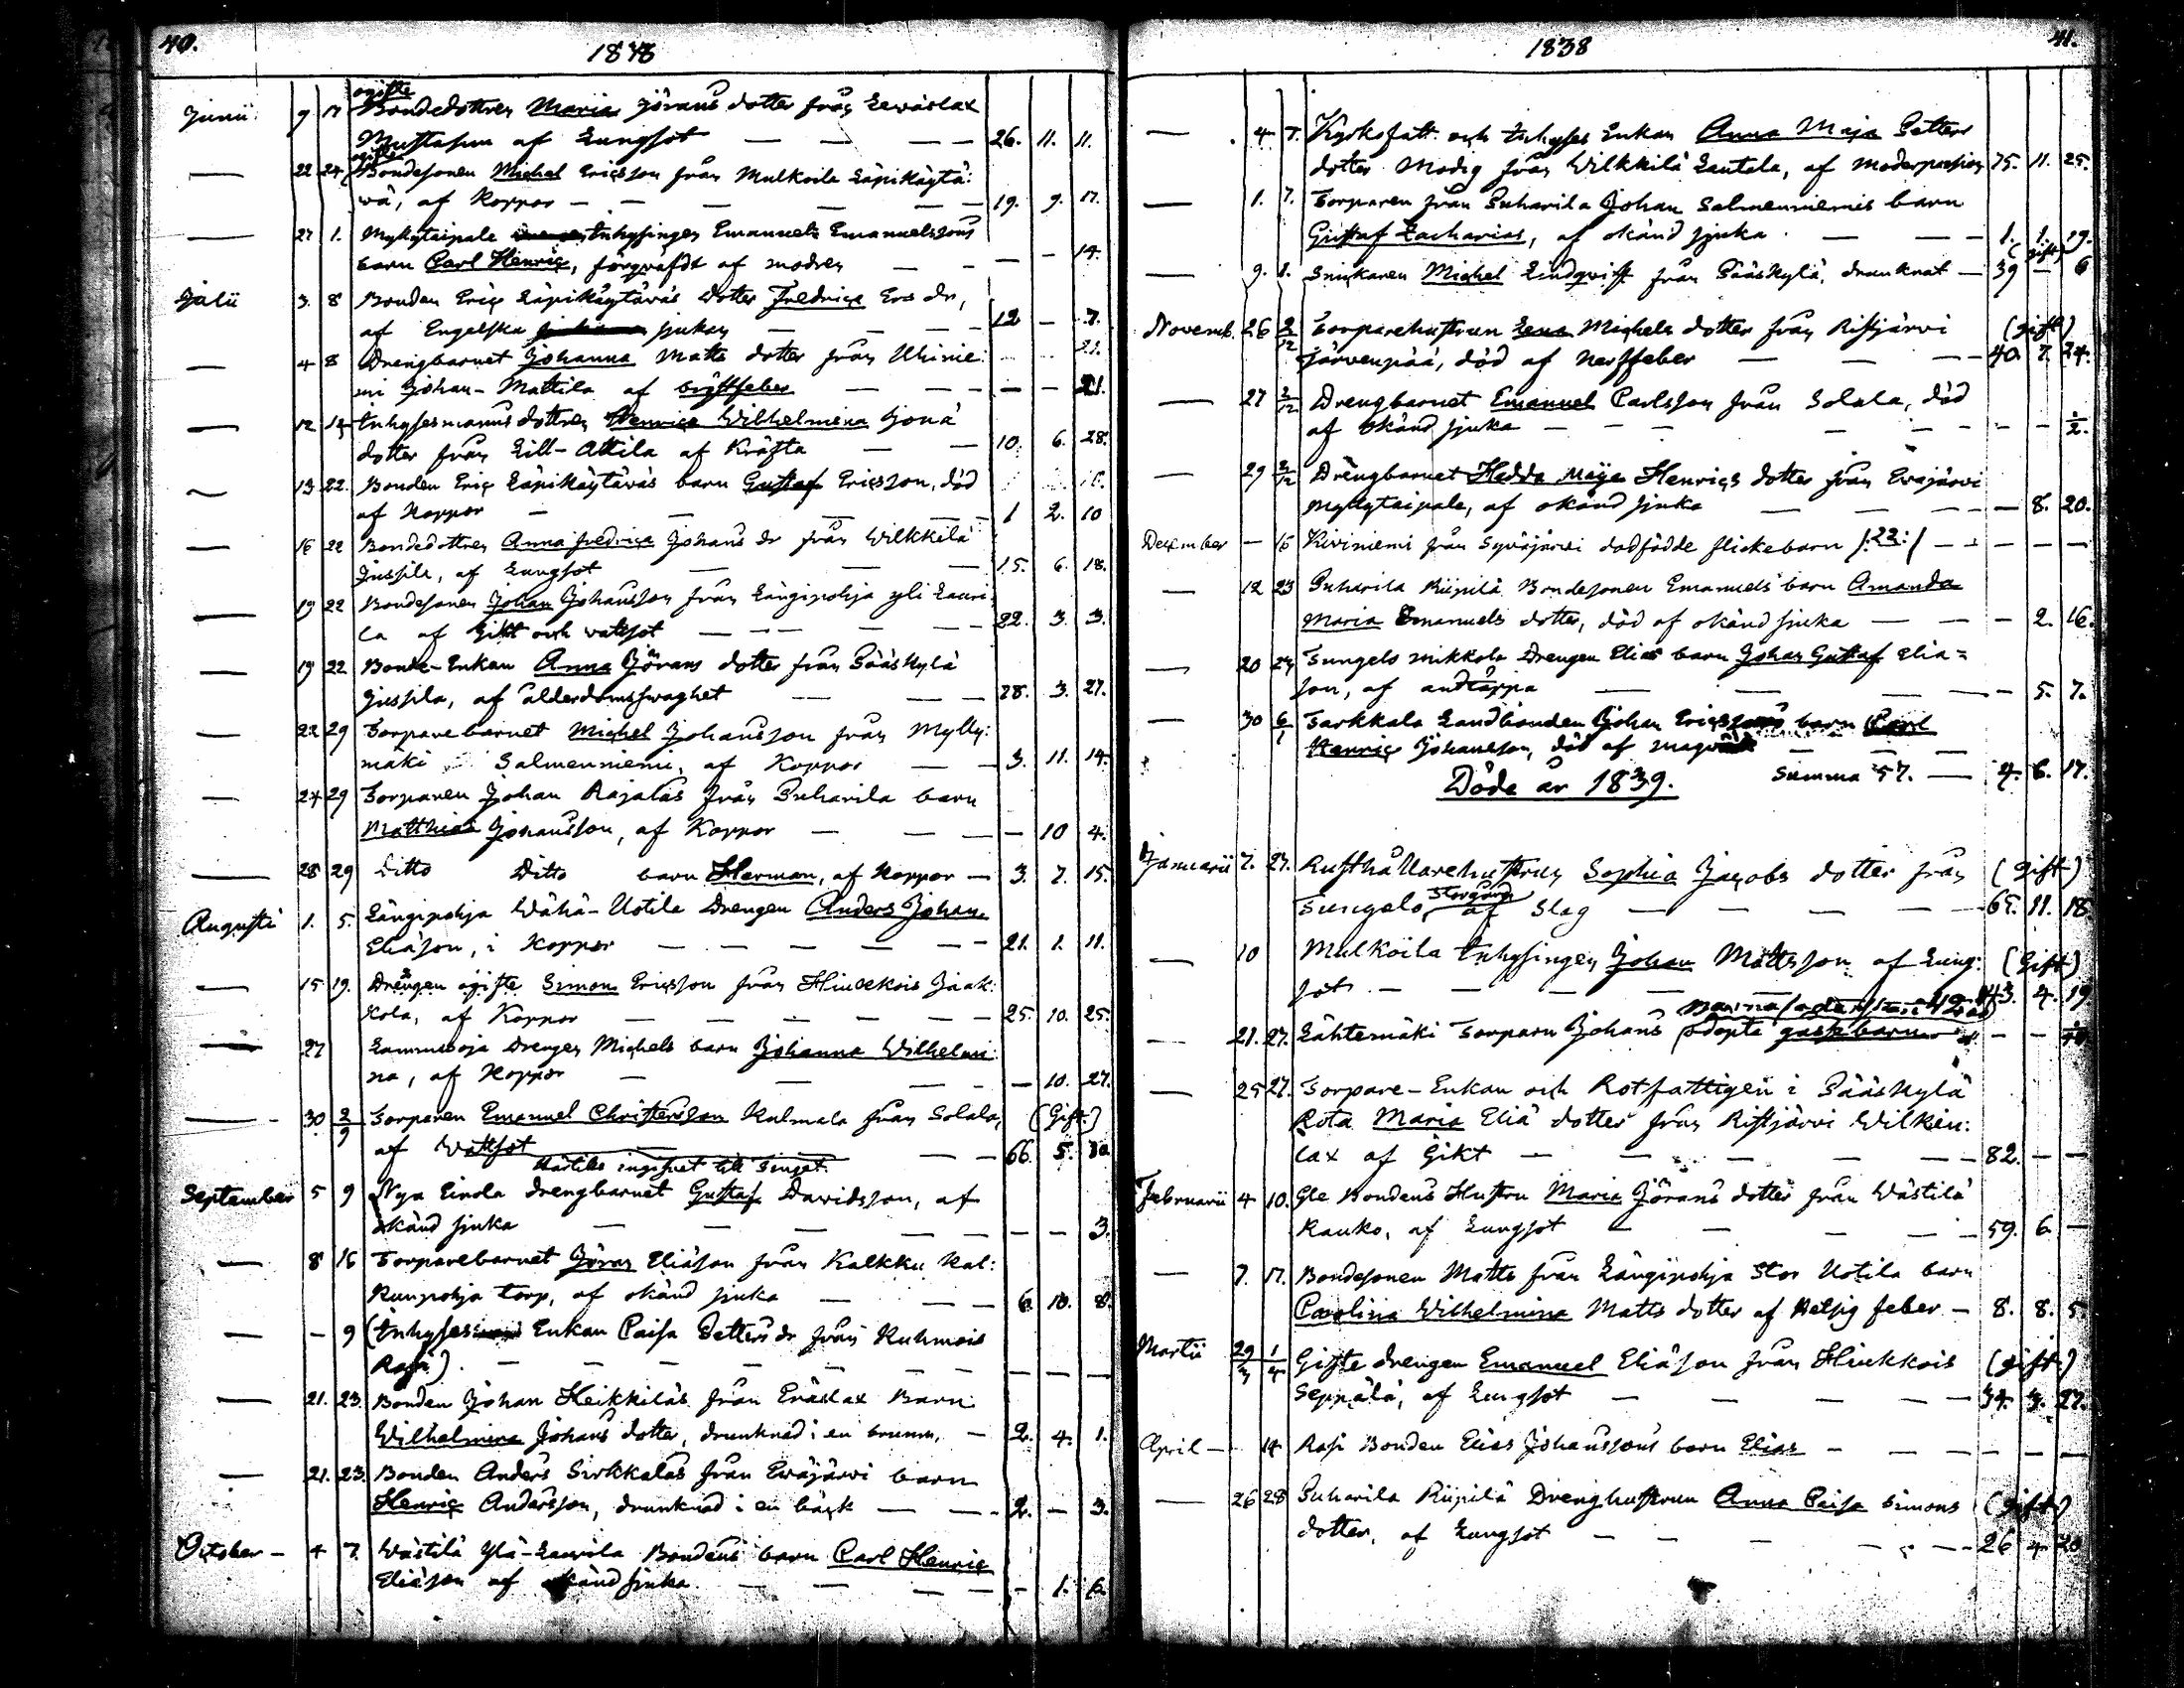 40.
1838
Junii 9 17 ogifte Bondedottren Maria Jörans dotter från Ewäslax
Mustasuu af Lungsot — — — 26. 11. 11.
— 22 24 ogifte Bondesonen Michel Ericsson från Mulkoila Läpikäytä:
wä, af Koppor — — — — 19. 9. 17.
— 27 1. Myllytaipale Inhysingen Emanuels Emanuelssons
barn Carl Henric, förqväfdt af modren — — — — 14.
Julii 3. 8 Bonden Eric Läpikäytäväs dotter Fredrica Ers dr,
af Engelska sjukan — — — 12 — 7.
— 4 8 Drengbarnet Johanna Matts dotter från Uhinie:
mi Johan-Mattila af bröstfeber — — — — 21.
— 12 14 Inhysesmanns dottren Henrica Wilhelmina Jona
dotter från Lill-Attila af Kräfta — — 10. 6. 28.
13. 22. Bonden Eric Läpikäytäväs barn Gustaf Ericsson, död
af Koppor — — — — 1 2. 10
— 16 22 Bondedottren Anna Fredrica Johans dr från Wilkkilä
Jussila, af Lungsot — — — 15. 6. 18.
— 19 22 Bondesonen Johan Johansson från Längipohja yli Lauri
la af Gikt och vatsot — — — — 22. 3. 3.
— 19 22 Bonde-Enkan Anna Jörans dotter från Pääskylä
Jussila, af ålderdomsswaghet — — 78. 3. 27.
— 22 29 Torparebarnet Michel Johansson från Mylly:
mäki Salmenniemi, af Koppor — — 3. 11. 14.
— 24 29 Torparen Johan Rajalas från Puharila barn
Matthias Johansson, af Koppor — — — — 10 4.
— 28 29 Ditto Ditto barn Herman, af Koppor — 3. 7. 15.
Augusti 1. 5. Längipohja Wähä-Uotila Drengen Anders Johan
Eliäson, i Koppor — — — — — 21. 1. 11.
— 15 19. Drengen ogifte Simon Ericsson från Hinckois Jaak:
kola, af Koppor — — — — — 25. 10. 25.
— 27 Lammasoja Drengen Michels barn Johanna Wilhelmi:
na, af Koppor — — — — — 10. 27.
— 30 2/9 Torparen Emanuel Christersson Kulmala från Solala, (Gift)
af Wattsot — — 66. 5. 30
September 5 9 Nya Einola drengbarnet Gustaf Davidsson, af
okänd sjuka — — — — — — 3.
— 8 16 Torparebarnet Jöran Eliäson från Kalkku Kal:
kunpohja torp, af okänd sjuka — — — 6. 10. 8.
— — 9 (Inhyses Enkan Caisa Petters dr från Kuhmois
Rasi). — — — — — — — — —
— 21. 23. Bonden Johan Heikkiläs från Eväslax Barn
Wilhelmina Johans dotter, drunknad i en brunn, — 2. 4. 1.
— 21. 23. Bonden Anders Sirkkalas från Ewäjärwi barn
Henric Andersson, drunknad i en bäck — — 2. — 3.
October — 4 7. Wästilä Ylä-Laurila Bondens barn Carl Henric
Eliäson af okänd sjuka. — — — — 1. 6.
1838
41.
— 4 7. Kyrkofatt. och Inhyses Enkan Anna Maja Petters
dotter Modig från Wilkkilä Lautala, af Moderpassion 75. 11. 25.
— 1. 7. Torparen från Puharila Johan Salmenniemis barn
Gustaf Zacharias, af okänd sjuka. — — 1. 1. 19.
— 9. 8. Snickaren Michel Lindqwist från Pääskylä, drunknat — (gift) 39 — 6
Novemb. 26 2/12 Torparehustrun Lena Michels dotter från Ristjärvi (gift)
Järvenpää, död af nerffeber — — — 40. 7. 24.
— 27 2/12 Drengbarnet Emanuel Carlsson från Solala, död
af okänd sjuka — — — — — — — — 1/2.
— 29 2/12 Drengbarnet Hedda Maija Henrics dotter från Ewäjärvi
Myllytaipale, af okänd sjuka — — — — 8. 20.
December — 16 Kiviniemi från Sywäjärwi dödfödde flickebarn /:22:/ — — — — —
— 12 23 Puharila Riipilä Bondesonen Emanuels barn Amanda
Maria Emanuels dotter, död af okänd sjuka — — — 2. 16.
— 20 24 Tungelo Mikkola Drengen Elias barn Johan Gustaf Elia=
son, af andtäppa — — — — 5. 7.
— 30 6/1 Tarkkala Landbonden Johan Ericssons barn Carl
Henric Johansson, död af — — —
Summa 57. — 4. 6. 17.
Döde år 1839.
Januarii 7. 27. Rusthållarehustrun Sophia Jacobs dotter från (gift)
Tungelo, Storgård af Slag — — — — 65. 11. 18.
— 10 Mulkoila Inhysingen Johan Mattsson af Lung: (Gift)
sot — — — — 43. 4. 19.
— 21. 27. Lähtemäki Torparn Johans odöpta gossebarn — —
— 25 27. Torpare-Enkan och Rotfattigen i Pääskylä
Rota Maria Eliä dotter från Ristjärvi Wilkin:
lax af Gikt — — — — — 82. — —
Februarii 4 10. Gle Bondens Hustru Maria Jörans dotter från Wästilä
Rauko, af Lungsot — — — — 59. 6 —
— 7. 17. Bondesonen Matts från Längipohja Stor Uotila barn
Carolina Wilhelmina Matts dotter af Hetsig feber — 8. 8. 5
Martii 29/3 1/4 Gifte drengen Emanuel Eliäson från Hinkkois (gift)
Seppälä, af Lungsot — — — — 34. 3. 27.
April — 14 Rasi Bonden Elias Johanssons barn Elias — — — — —
— 26 28 Puharila Riipilä Drenghustrun Anna Caisa Simons (gift)
dotter, af Lungsot — — — — — 26 4 20